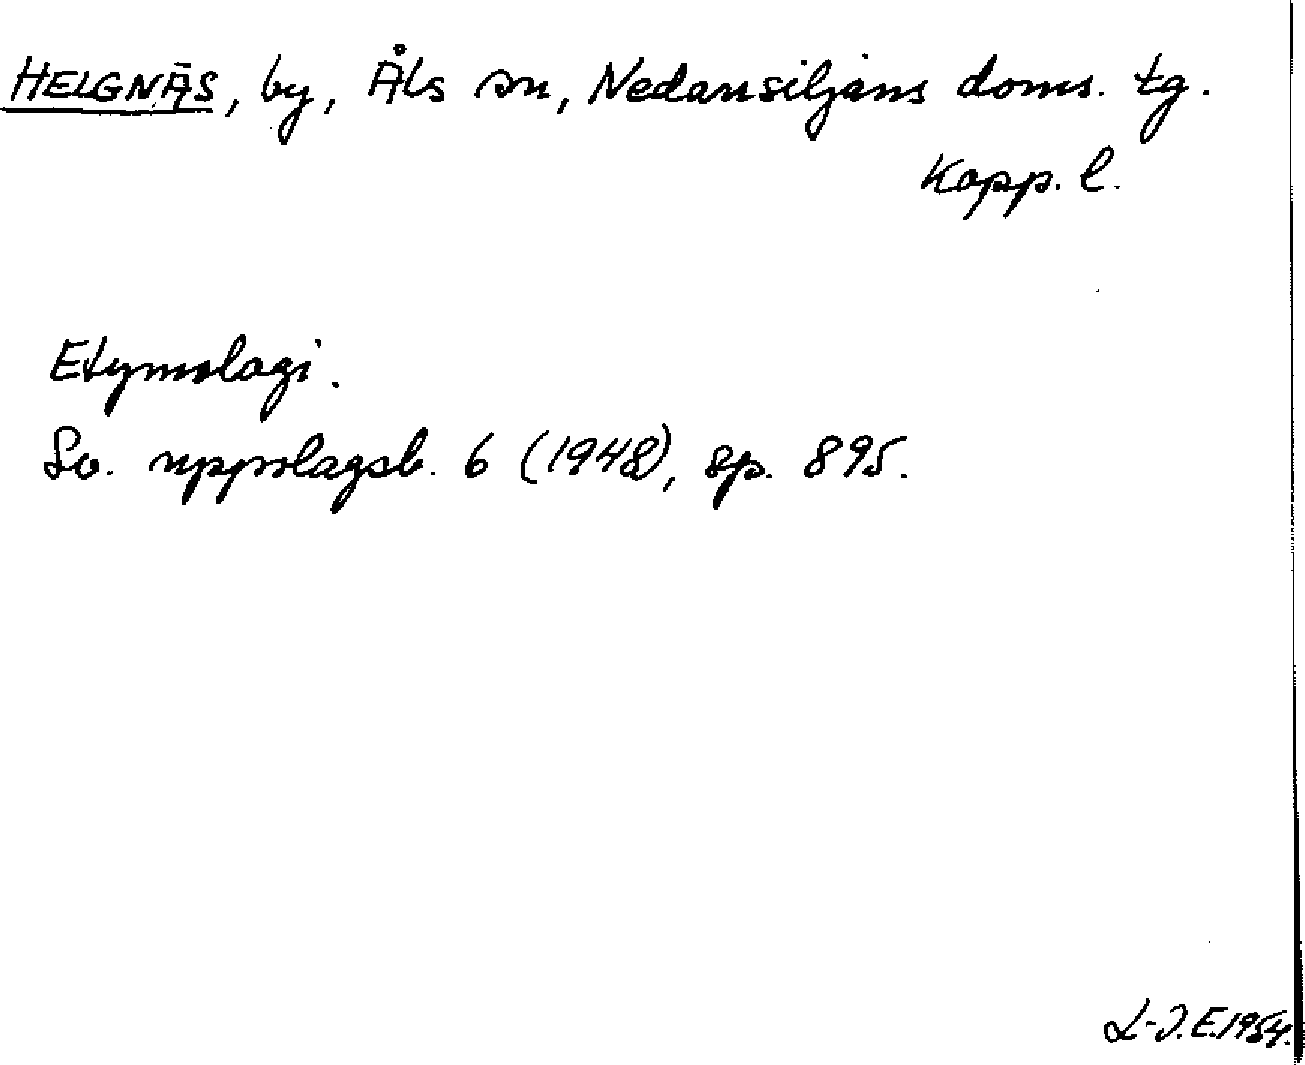 HELGNÄS, by, Åls sn, Nedansiljans doms. tg.
Kopp. l.
Etymologi.
Sv. uppslagsb. 6 (1948), sp. 895.
L-J.E. 1954.